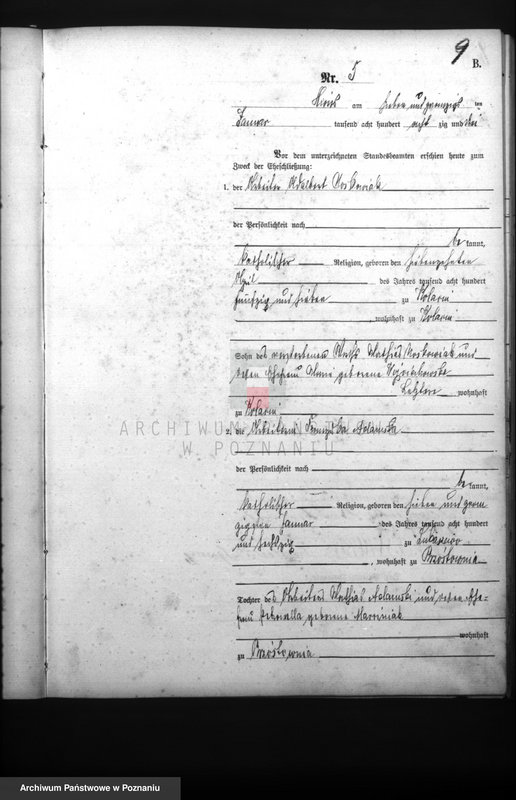 9
B.
Nr. 5
am sieben und zwanzig ten
Januar tausend acht hundert acht zig und drei
Vor dem unterzeichneten Standesbeamten erschien heute zum
Zweck der Eheschließung:
1. der Arbeiter Adalbert
der Persönlichkeit nach
be kannt,
katholischer Religion, geboren den siebenzehnten
April des Jahres tausend acht hundert
fünfzig und sieben zu
, wohnhaft zu
Sohn des verstorbenen Mathias und
dessen Ehefrau geborene
Letztere wohnhaft
zu
ARCHIWUM PAŃSTWOWE
W POZNANIU
2. die Arbeiterin Adamska
der Persönlichkeit nach
be kannt,
katholischer Religion, geboren den sieben und zwan
zigsten Januar des Jahres tausend acht hundert
und sechszig zu
, wohnhaft zu Brzóstownia
Tochter des Arbeiters Mathias Adamski und dessen Ehe-
frau Petronella geborene Marciniak
wohnhaft
zu Brzóstownia
Archiwum Państwowe w Poznaniu